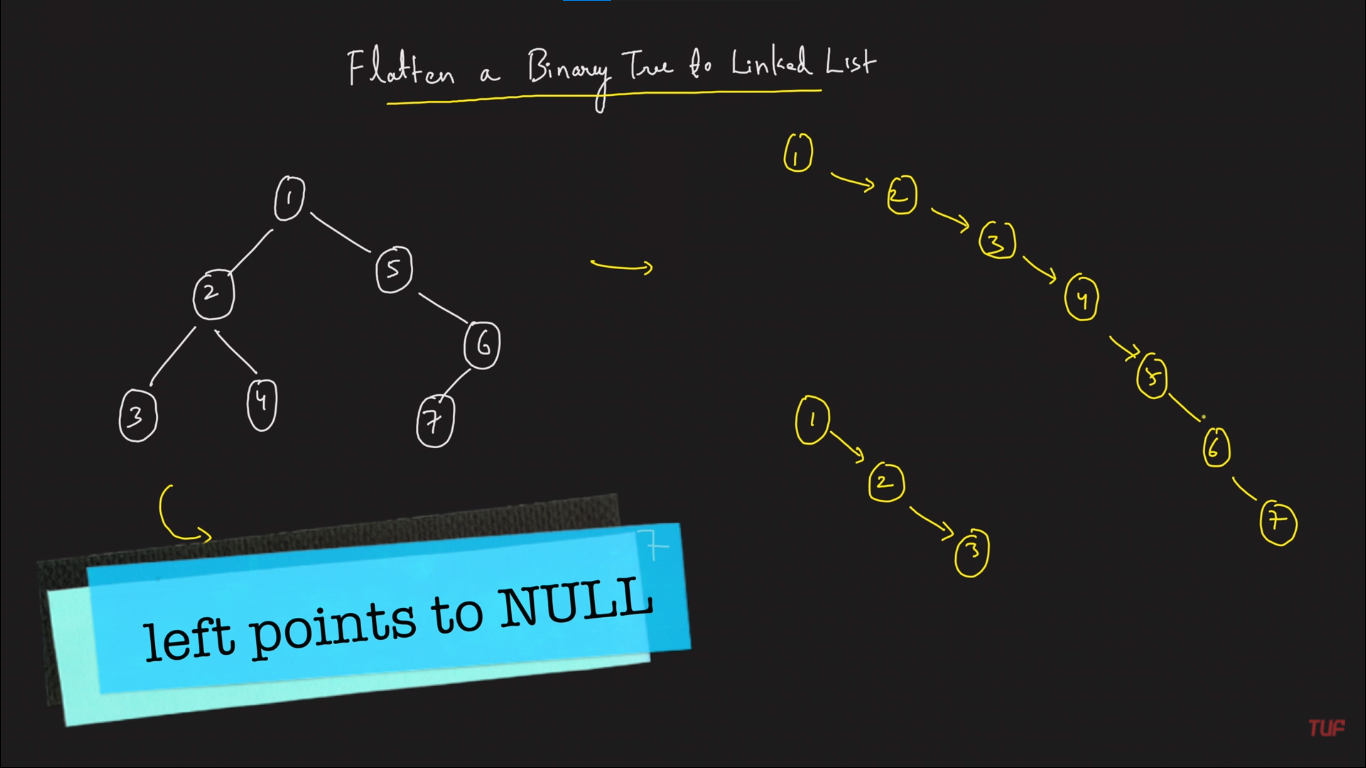 Flatten a Binary Tree to Linked List
1
2
5
3
4
6
7
1
2
3
4
5
6
7
1
2
3
7
left points to NULL
TUF